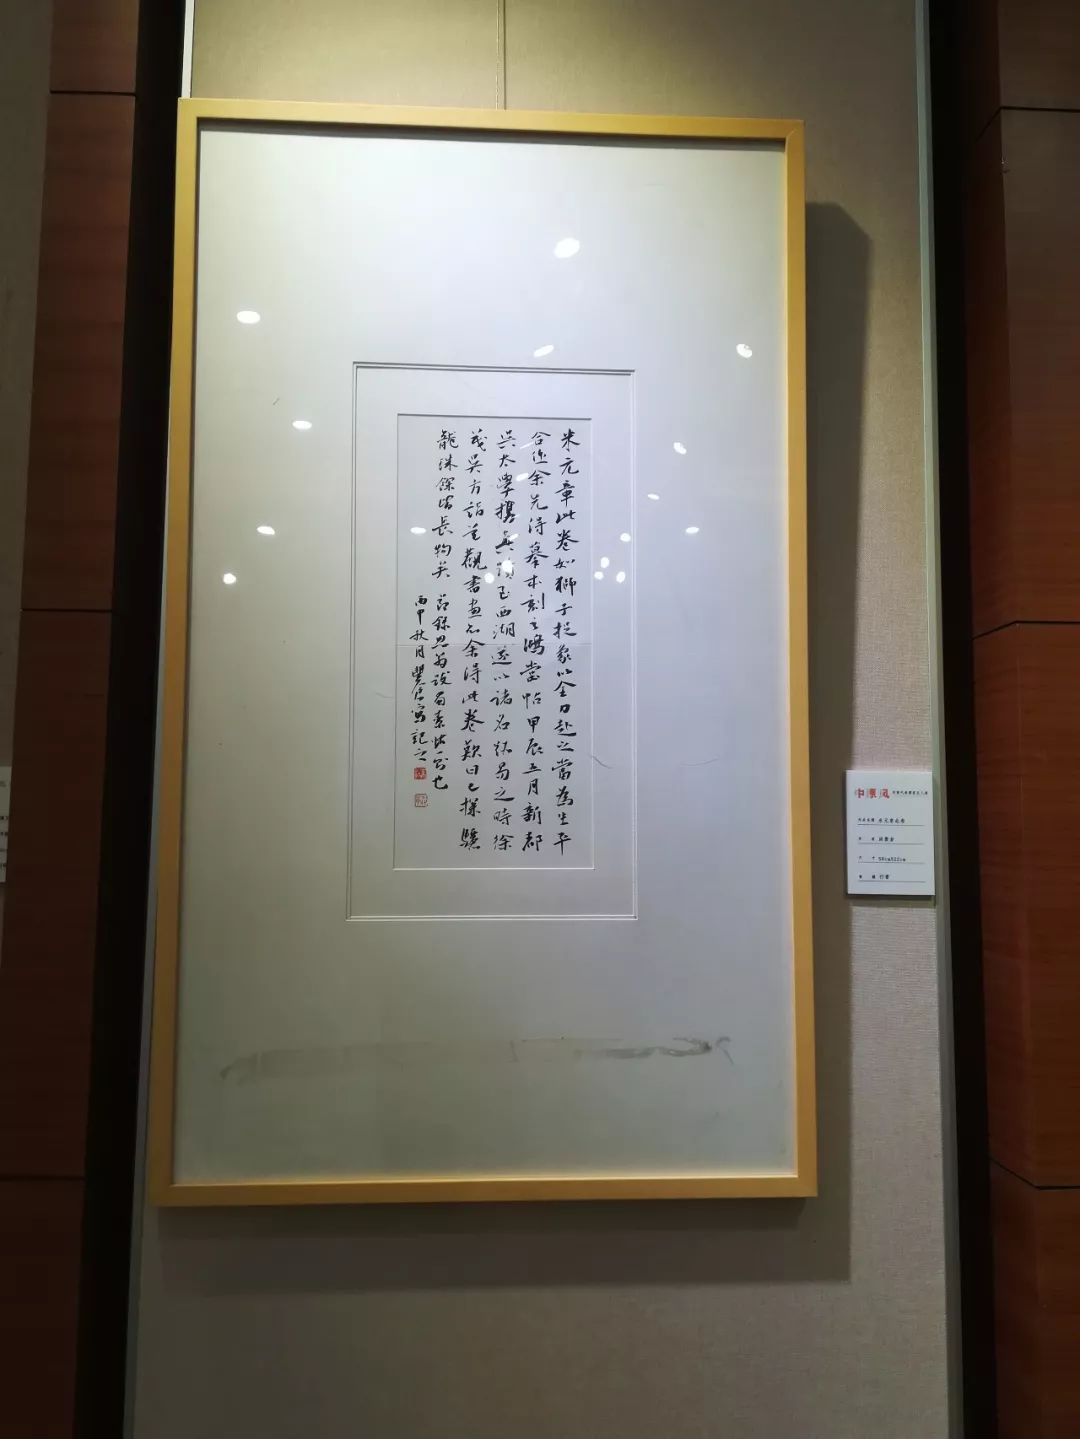 米元章此卷如獅子捉象以全力赴之當為生平
合作余先得摹本刻之鴻堂帖甲辰五月新都
吳太學攜真蹟至西湖遂以諸名跡易之時徐
茂吳方詣吳觀書畫知余得此卷歎曰已探驪
龍珠餘皆長物矣 節錄思翁跋蜀素帖一則也
丙申秋月 寫記之
中國風
米元章此卷
行書